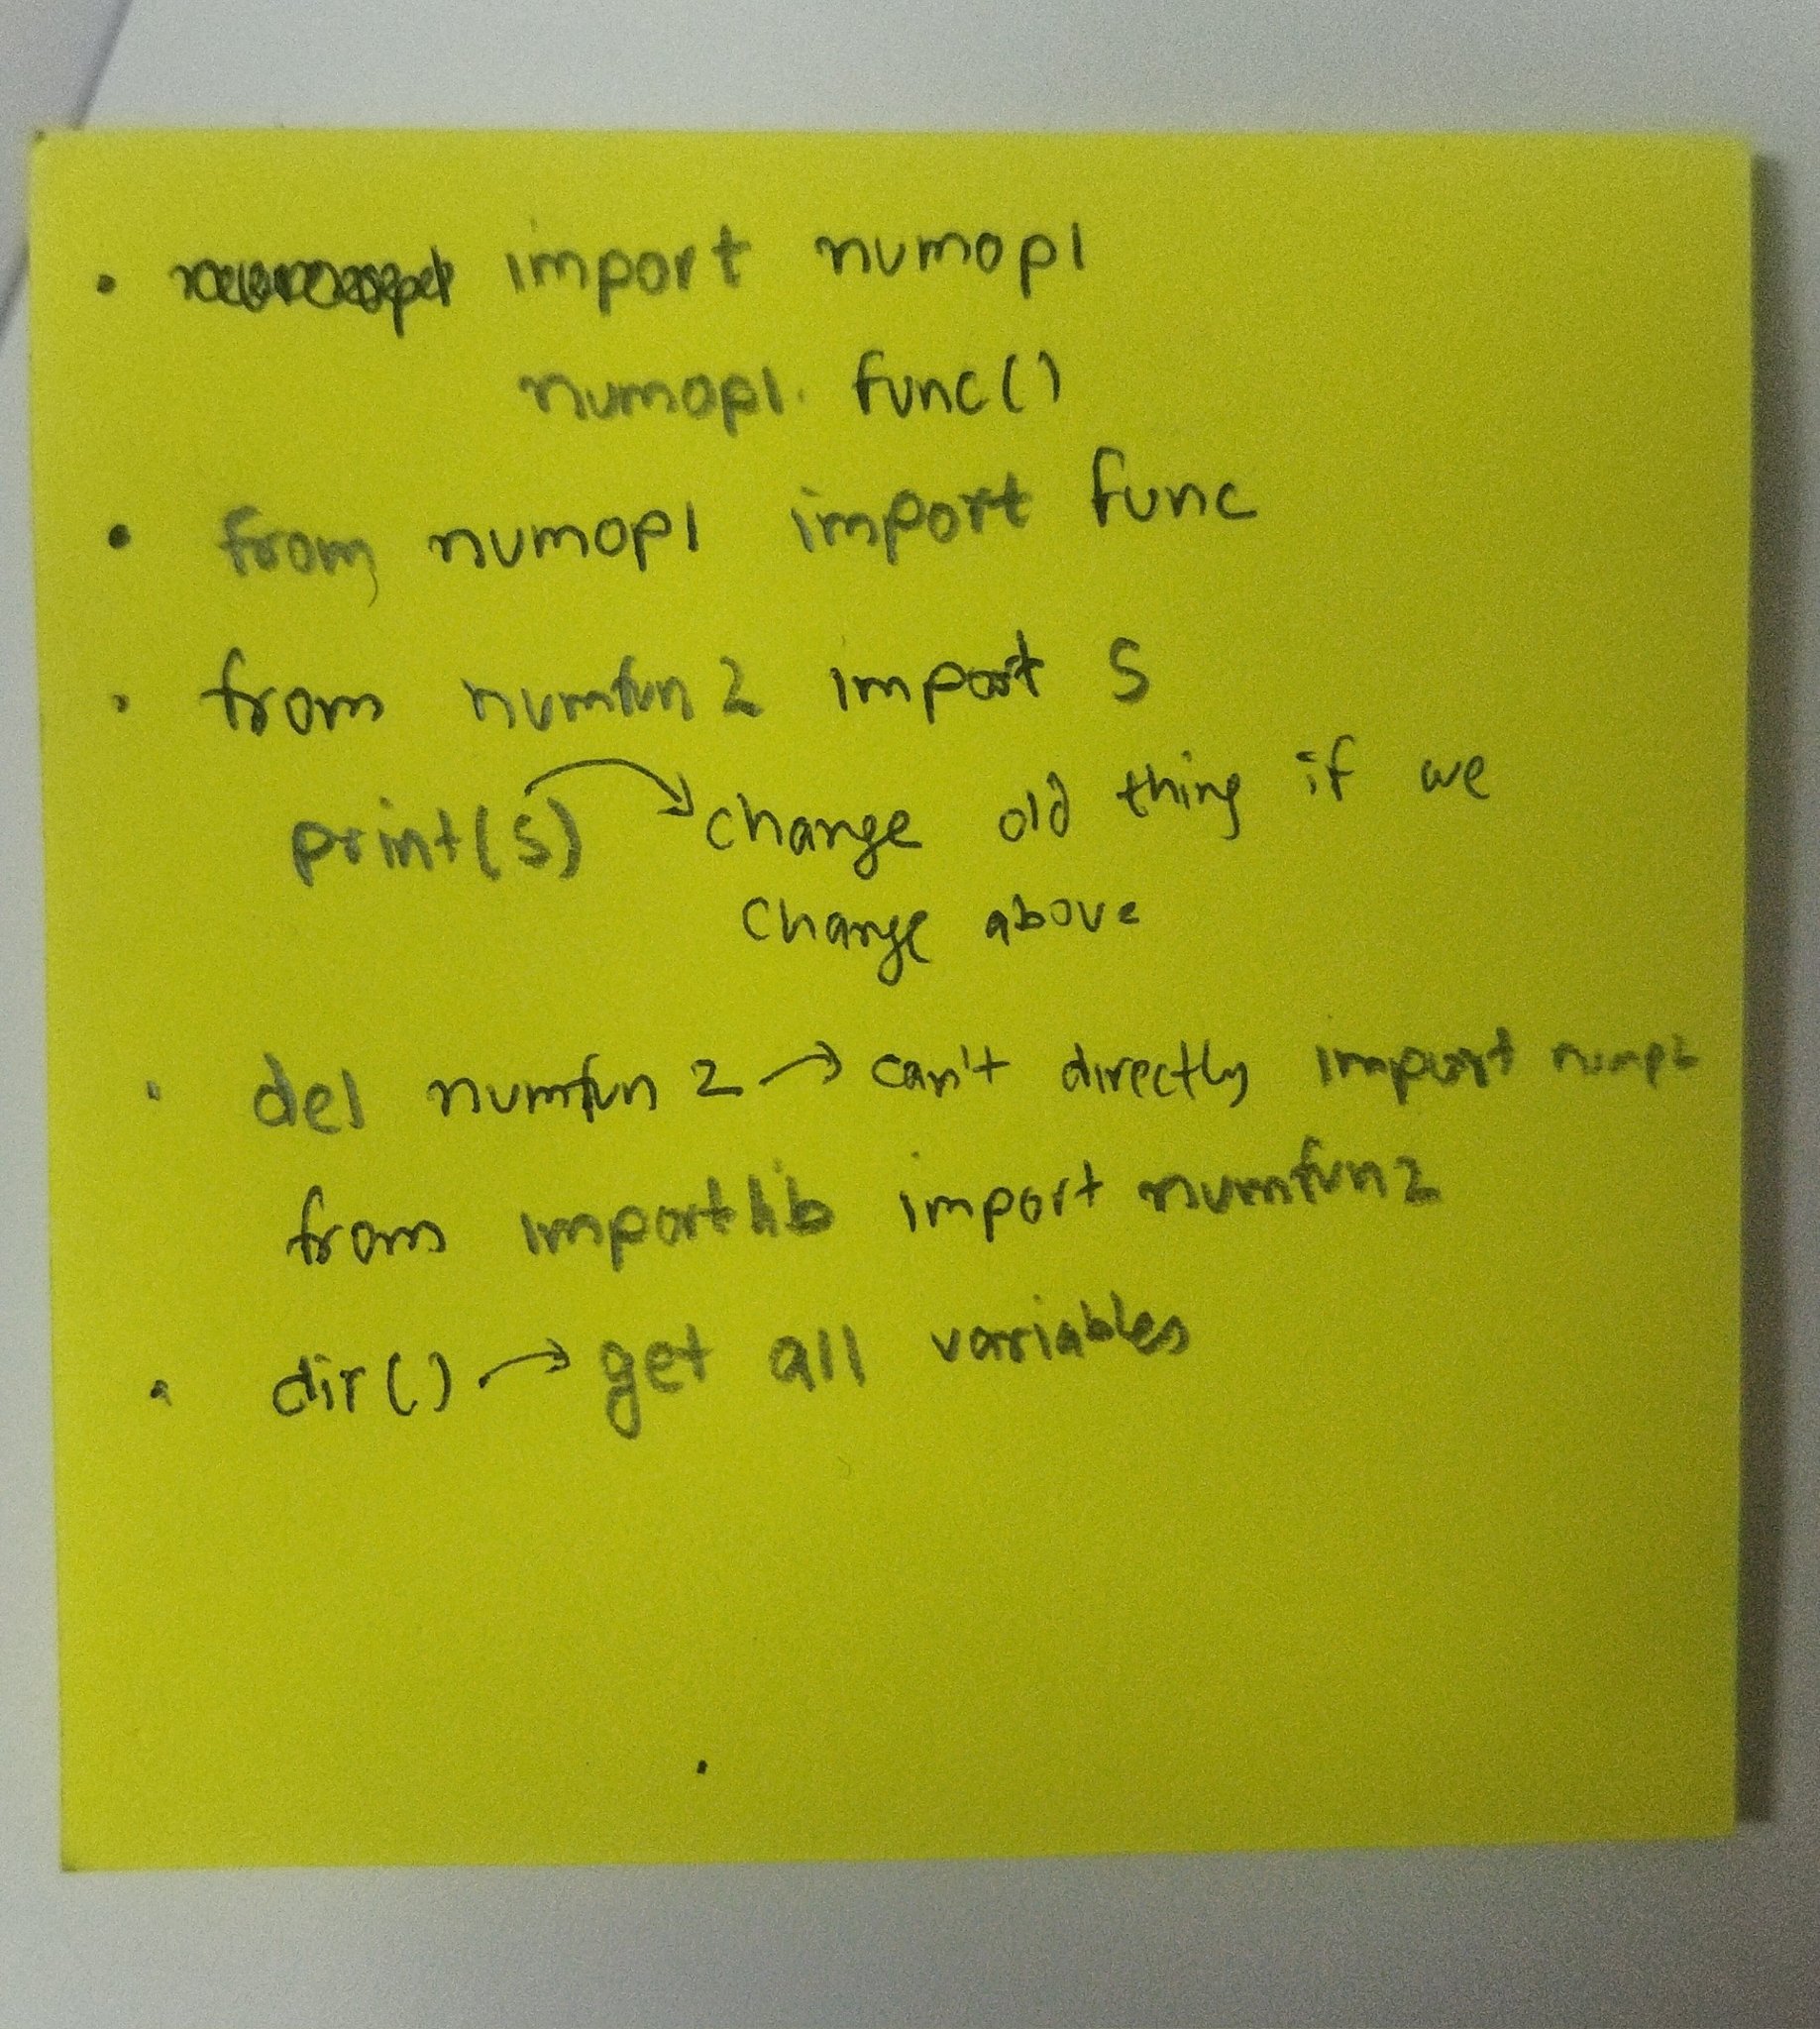 • import numop1
numop1. func()
• from numop1 import func
• from numfun2 import s
print(s) → change old thing if we
change above
• del numfun2 → can't directly import
from importlib import numfun2
• dir() → get all variables